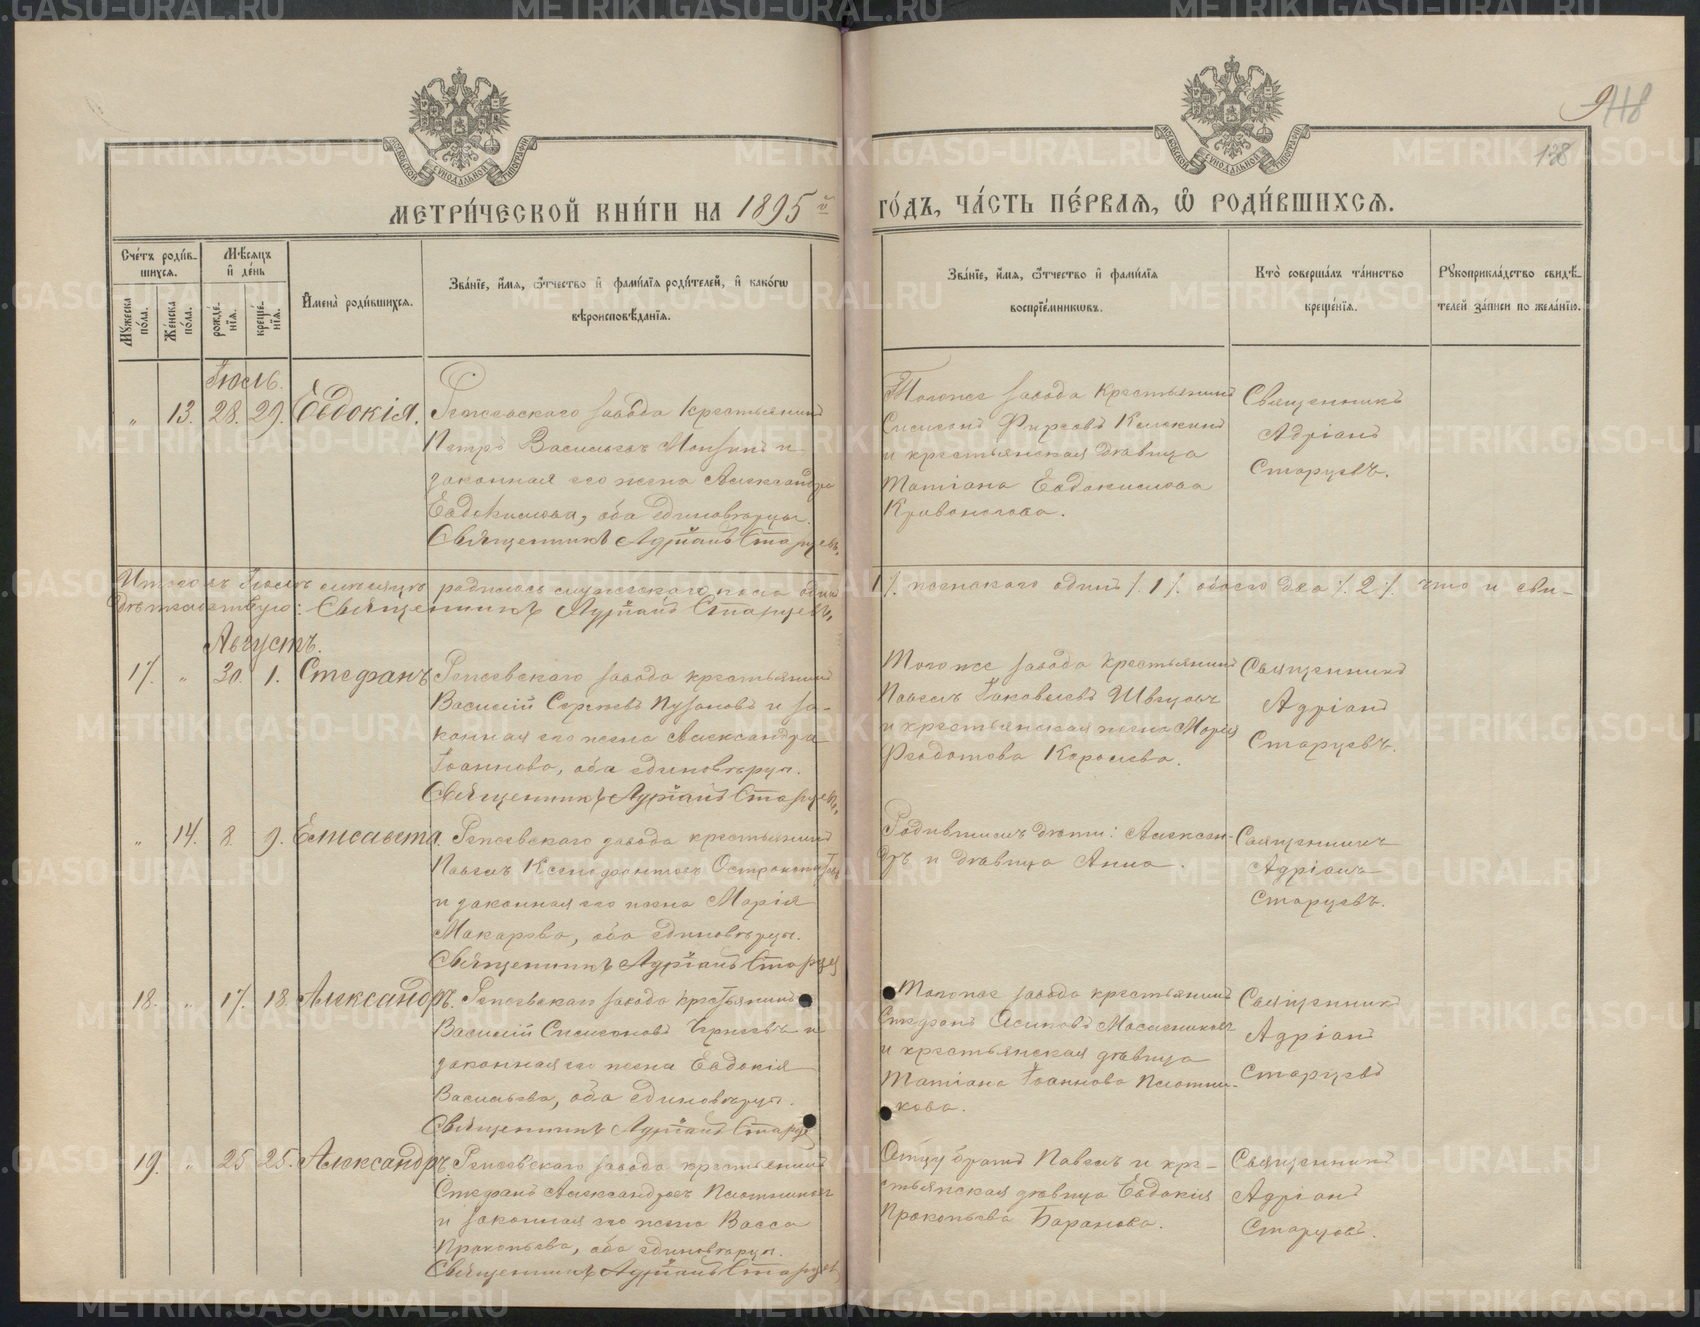 МЕТРИ́ЧЕСКОЙ КНИ́ГИ НА 1895 й
ГО́ДЪ, ЧА́СТЬ ПЕ́РВАЯ, Ѡ҆ РОДИ́ВШИХСЯ.
138
Сче́тъ роди́в-
шихся.
Мѣ́сяцъ
и҆ де́нь
Мꙋ́жеска
по́ла.
Же́нска
по́ла.
рожде́-
нїѧ.
креще́-
нїѧ.
И҆мена̀ роди́вшихся.
Зва́нїе, и҆́мя, ѻ҆́тчество и҆ фами́лїя роди́телей, и҆ како́гѡ
вѣроисповѣ́данїя.
Зва́нїе, и҆́мя, ѻ҆́тчество и҆ фами́лїя
воспрїе́мникѡвъ.
Кто̀ соверша́лъ та́инство
креще́нїя.
Рꙋкоприкла́дство свидѣ́-
телей за́писи по жела́нїю.
Іюль.
„ 13. 28. 29. Евдокія.
Режевского завода крестьянинъ
Петръ Васильевъ и
законная его жена Александра
Евдокимова, оба единовѣрцы.
Священникъ Адріанъ Старцевъ.
Тогоже завода крестьянинъ
Сисигонъ Фирсовъ
и крестьянская дѣвица
Татіана Евдокимова
Кривоногова.
Священникъ
Адріанъ
Старцевъ.
Итого въ Іюлѣ мѣсяцѣ родилось мужескаго пола одинъ
1 ⁒ женскаго одинъ ⁒ 1 ⁒ обоего два ⁒ 2 ⁒ что и сви-
дѣтельствую: Священникъ Адріанъ Старцевъ.
Августъ.
17. „ 30. 1. Стефанъ
Режевского завода крестьянинъ
Василій Сергѣевъ Пузановъ и за-
конная его жена Александра
Іоаннова, оба единовѣрцы.
Священникъ Адріанъ Старцевъ.
Тогоже завода крестьянинъ
Павелъ Іаковлевъ Швецовъ
и крестьянская жена Марія
Федотова Королева.
Священникъ
Адріанъ
Старцевъ.
„ 14. 8. 9. Елисавета.
Режевского завода крестьянинъ
Павелъ Ксенофонтовъ
и законная его жена Марія
Макарова, оба единовѣрцы.
Священникъ Адріанъ Старцев
Родившихъ дѣти: Алексан-
дръ и дѣвица Анна.
Священникъ
Адріанъ
Старцевъ.
18. „ 17. 18. Александръ.
Режевскаго завода крестьянинъ
Василій Сисигоновъ и
законная его жена Евдокія
Васильева, оба единовѣрцы.
Священникъ Адріанъ Старце
Тогоже завода крестьянинъ
Стефанъ Осиповъ Масленниковъ
и крестьянская дѣвица
Татіана Іоаннова Плотни-
кова.
Священникъ
Адріанъ
Старцевъ
19. „ 25 25. Александръ
Режевскаго завода крестьянинъ
Стефанъ Александровъ Плотниковъ
и законная его жена Васса
Прокопьева, оба единовѣрцы.
Священникъ Адріанъ Старцевъ
Отцу братъ Павелъ и кре-
стьянская дѣвица Евдокія
Прокопьева Баранова.
Священникъ
Адріанъ
Старцевъ.
METRIKI.GASO-URAL.RU